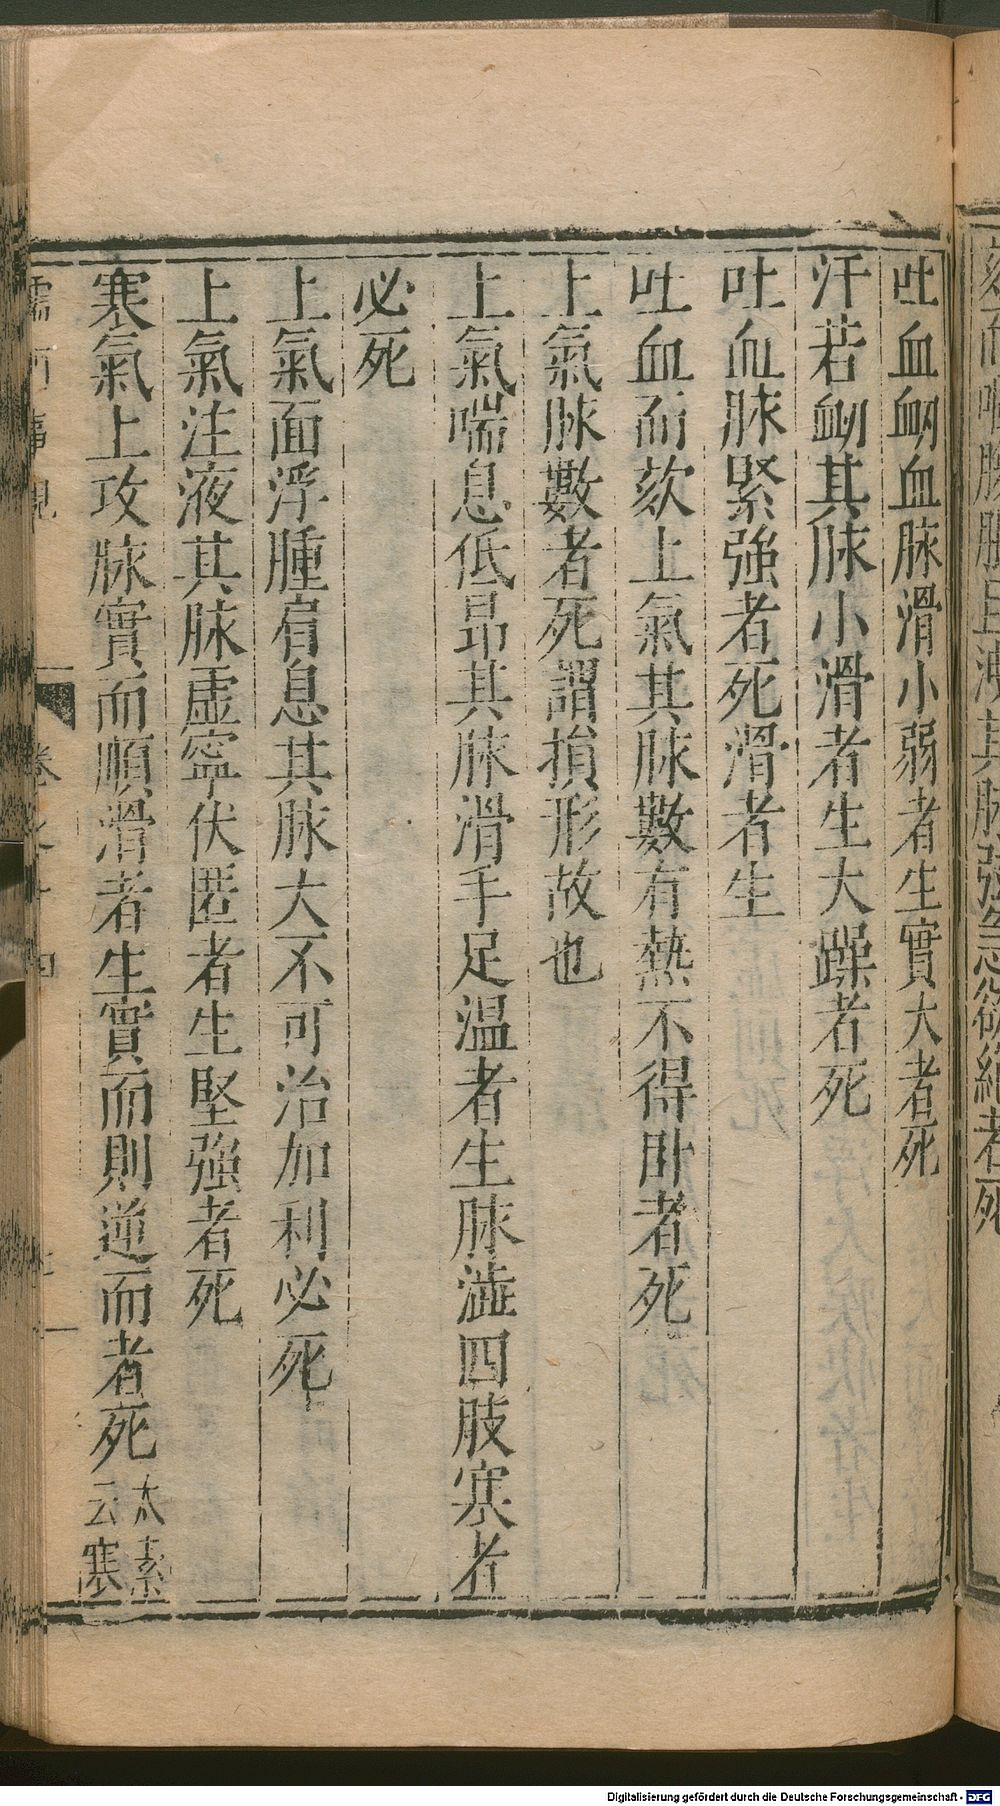 吐血衂血脉滑小弱者生實大者死
汗若衂其脉小滑者生大躁者死
吐血脉緊強者死滑者生
吐血而欬上氣其脉數有熱不得卧者死
上氣脉數者死謂損形故也
上氣喘息低昂其脉滑手足温者生脉澁四肢寒者
必死
上氣面浮腫肩息其脉大不可治加利必死
上氣注液其脉虛寧伏匿者生堅强者死
寒氣上攻脉實而順滑者生實而則逆而者死
太素
云寒
Digitalisierung gefördert durch die Deutsche Forschungsgemeinschaft - DFG